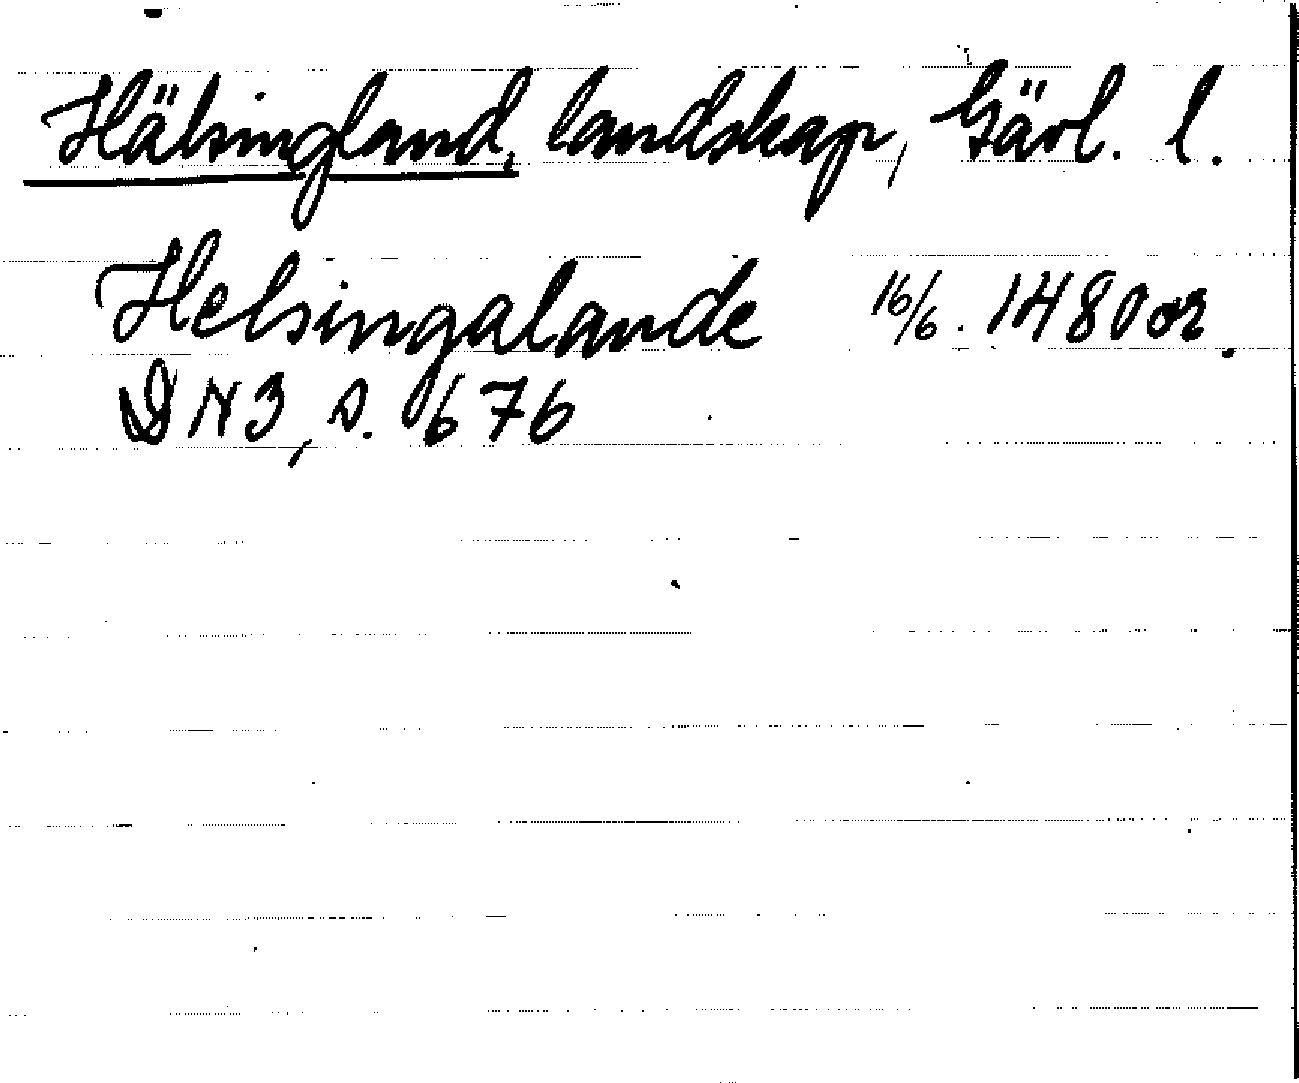 Hälsingland, landskap, Gävl. l.
Helsingalande 16/6. 1480 or.
DN 3, s. 676